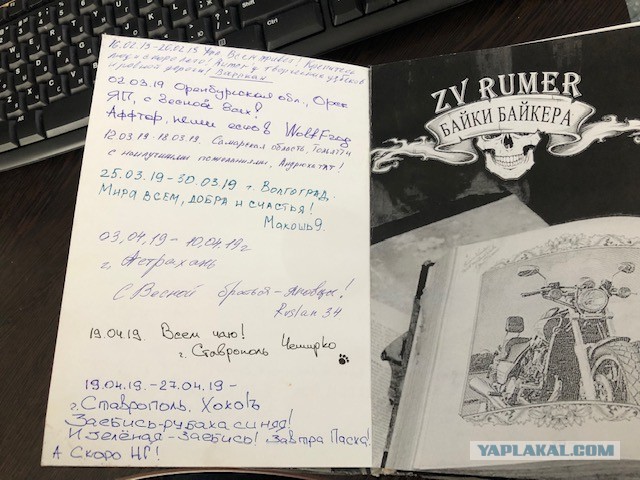 16.02.19-26.02.19 Уфа. Всем привет!
и ровной дороги!
02.03.19 Оренбургская обл., Орск
ЯП, с Весной Вас!
Аффтар, пеши есчо! WolfFrag
12.03.19-18.03.19. Самарская область, Тольятти
с наилучшими пожеланиями, Андрюхатлт!
25.03.19-30.03.19 г. Волгоград.
Мира всем, добра и счастья!
Макошь9.
03,04,19- 10,04.19г
г, Астрахань
С Весной братья-яповцы!
Ruslan 34
19.04.19. Всем чаю!
г. Ставрополь Чеширко
19.04.19.-27.04.19-
г. Ставрополь. ХохоЪ
Заебись-рубаха синяя!
И зелёная-Заебись! Завтра Пасха!
А Скоро НГ!
ZV RUMER
БАЙКИ БАЙКЕРА
YAPLAKAL.COM